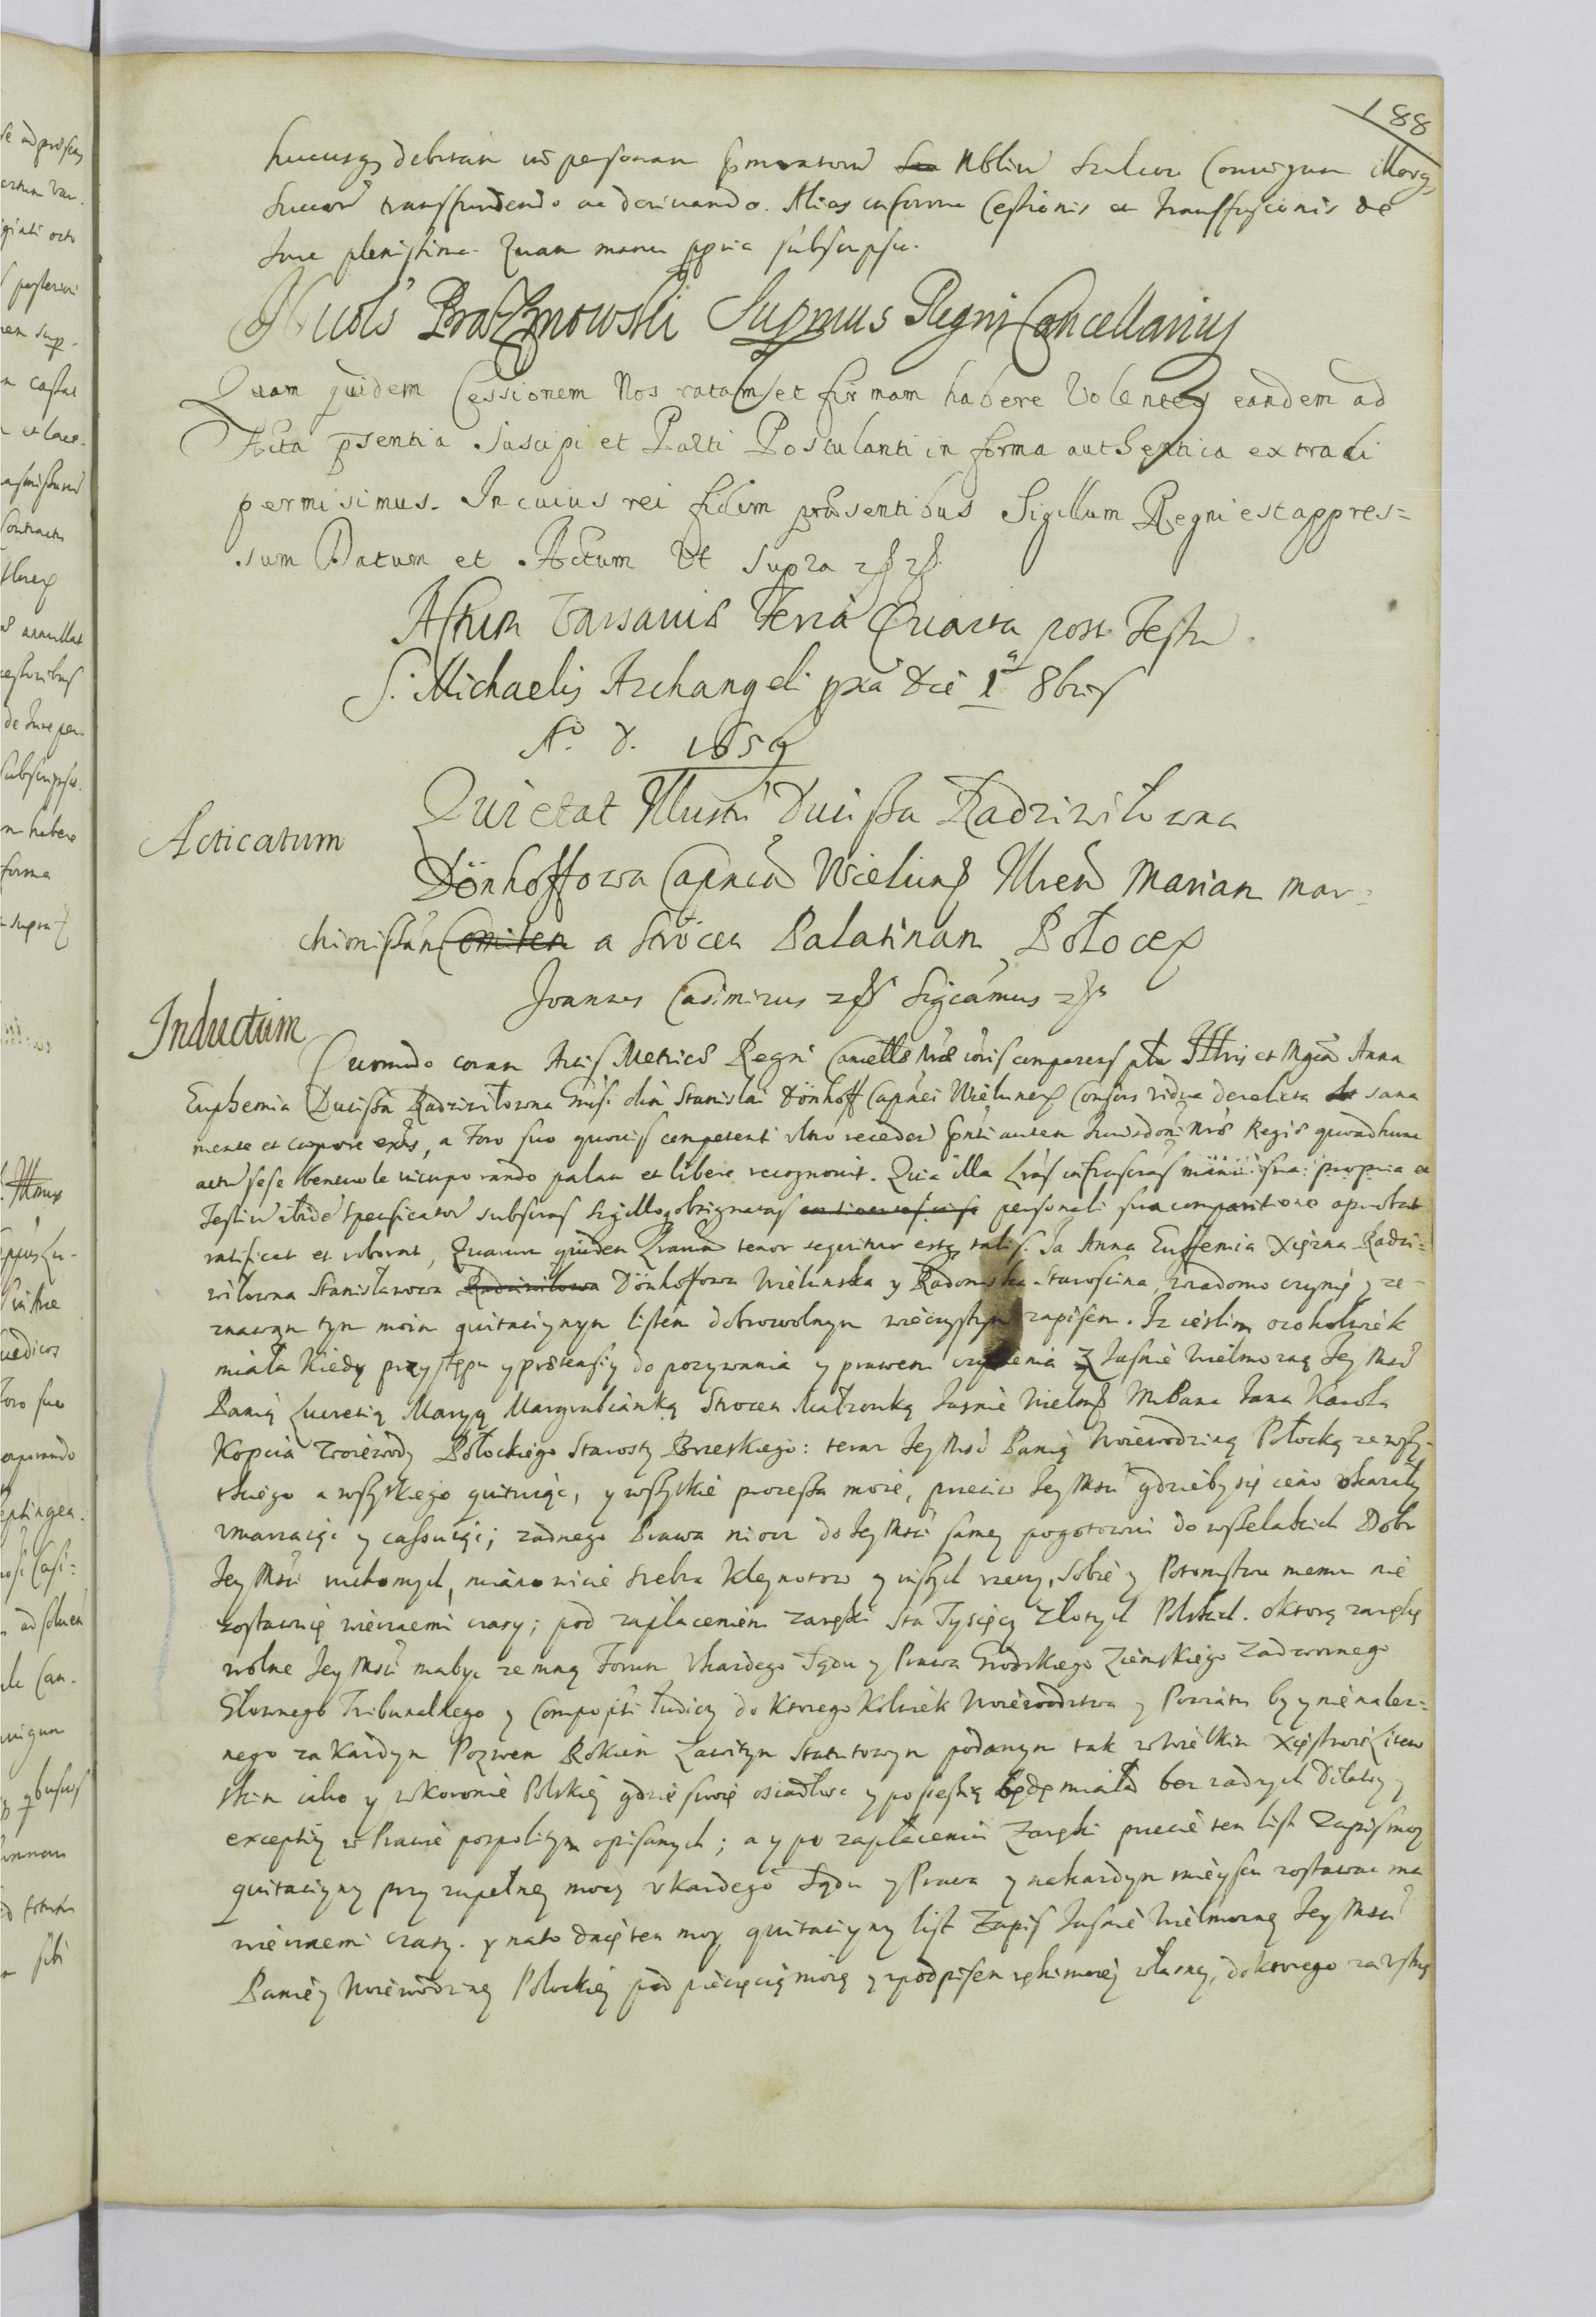 188
hucusq debitam in personam pmnatorū Nbliū Sulior Coniugum illorq
Succor transfundendo ac derivando. Alias in forma Cessionis et Transfusionis de
Iure plenissima. Quam manu ppria subscripsu.
Nicols Prażmowski Supmus Regni Cancellarius
Quam quidem Cessionem Nos ratam et firmam habere Volentes eandem ad
Acta psentia Suscipi et Parti Postulanti in forma authentica extradi
permisimus. In cuius rei fidem præsentibus Sigillum Regni est appres=
sum Datum et Actum Ut Supra
Actum Varsaviæ Feria Quarta post Festū
S. Michaelis Archangeli pxa die 1ª 8bris
Aº. D. 1659
Acticatum
Quietat Illustr Ducissa Radziwiłowna
Dönhoffowa Capnea Wielun Illrem Mariam mar=
chionissan Comiten a Strocen Palatinam Połocen
Joannes Casimirus Sigcamus
Inductum
Quomodo coram Actis Metrices Regni Cancellæ Nræ comparens Illris et Mgca Anna
Euphemia Ducissa Radziwiłowna olim Stanislai Dönhoff Capnei Wielunen Consors vidua derelicta sana
mente et corpore exns, a Foro suo quovis competenti recedens autem Nræ Regiæ quoadhunc
actū sese benevole incorporando palam et libere recognovit. Quia illa Lras infrascras manu sua propria et
Testiū ibidē specificator subscras sigilloq obsignatas personali sua comparitione aprobat
ratificat et roborat, Quarum quidem Lrarum tenor sequitur estq talis. Ja Anna Euffemia Xiężna Radzi=
wiłowna Stanisławowa Radziwiłowa Dönhoffowa Wielunska y Radomska Starościna, wiadomo czynię y ze=
znawam tym moim quitacijnym listem dobrowolnym wieczystym zapisem. Iz ieslim ocokolwiek
miała kiedy przystępu y prætensiy do pozywania y prawem czynienia z Jasnie Wielmozną Jey Mscią
Panią Lucretią Maryą Margrabianką Strocen Małzonką Jasnie Wielmo Pana Jana Karola
Kopcia Woiewody Połockiego Starosty Brzeskiego: teraz Jey Mść Panią Woiewodziną Połocką ze wszy=
tkiego a wszytkiego quituiąc, y wszytkie processa moie, przeciw Jey Mści gdzieby się ieno okazały
vmarzaiąc y cassuiąc; zadnego Prawa niocz do Jey Mści samey pogotowiu do wszelakich Dobr
Jey Mści ruchomych, mianowicie srebra kleynotow y inszych rzeczy, sobie y Potomstwu memu nie
zostawuię wiecznemi czasy; pod zapłaceniem zaręki sta Tysięcy Złotych Polskich. o ktorą zarękę
wolne Jey Mści ma byc ze mną Forum v kazdego Sądu y Prawa Grodzkiego Ziemskiego Zadwornego
Głownego Tribunalnego y Compositi Iudicij do ktorego kolwiek Woiewodztwa y Powiatu by y nienalez=
nego za kazdym Pozwem Rokiem Zawitym Statutowym podanym tak w Wielkim Xięstwie Litew
skim iako y w Koronie Polskiey gdzie swoię osiadłosc y possessią będę miała bez zadnych Dilaciy y
exceptiy w Prawie pospolitym opisanych; a y po zapłaceniu Zaręki przecie ten list Zapis moy
quitacijny przy zupełney mocy v kazdego Sądu y Prawa y na kazdym mieyscu zostawac ma
wiecznemi czasy. y nato daię ten moy quitacijny list Zapis Jasnie Wielmozney Jey Mści
Paniey Woiewodziney Połockiey pod pieczęcią moią y spodpisem ręki moiey własney, do ktorego za vstną